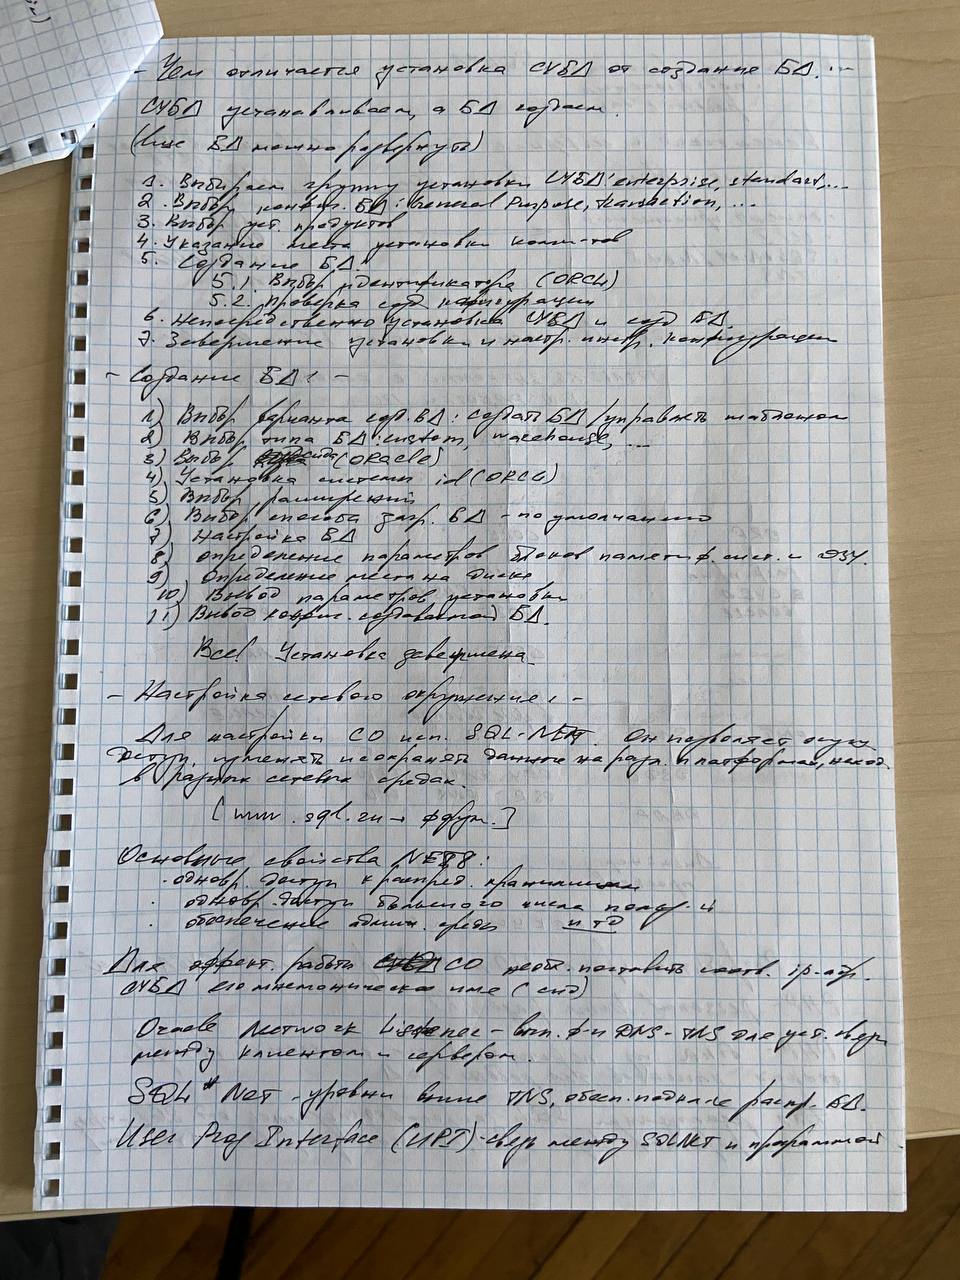 - Чем отличается установка СУБД от создание БД. -
СУБД устанавливаем, а БД создаем.
(Еще БД можно развернуть)
1. Выбираем группу установки СУБД: enterprise, standart, ...
2. Выбор конфиг. БД: General Purpose, Transaction, ...
3. Выбор уст. продуктов
4. Указание места установки комп-тов
5. Создание БД:
5.1. Выбор идентификатора (ORCL)
5.2. Проверка созд. конфигурации
6. Непосредственно установка СУБД и созд. БД.
7. Завершение установки и настр. инстр. конфигурации
- Создание БД: -
1) Выбор варианта созд. БД: создать БД / управлять шаблоном
2) Выбор типа БД: custom, warehouse, ...
3) Выбор (Oracle)
4) Установка системы id (ORCL)
5) Выбор расширений
6) Выбор способа загр. БД - по умолчанию
7) Настройка БД
8) Определение параметров блоков памяти ф. сист. и ОЗУ.
9) Определение места на диске
10) Вывод параметров установки
11) Вывод конфиг. создаваемой БД.
Все! Установка завершена.
- Настройка сетевого окружения: -
Для настройки СО исп. SQL-NET. Он позволяет осущ.
доступ, изменять и сохранять данные на разл. платформах, наход.
в разных сетевых средах.
[www.sql.ru → форум.]
Основные свойства NET8:
· одновр. доступ к распред. хранилищам
· одновр. доступ большого числа польз-й
· обеспечение админ. среды и тд
Для эффект. работы СО необх. поставить соотв. ip-адр.
СУБД его мнемоническое имя (сид)
Oracle Network Listener - вып. ф-и DNS-TNS для уст. связи
между клиентом и сервером.
SQL*Net - уровни выше TNS, обесп. подкл. к распр. БД.
User Prog Interface (UPI) - связь между SQLNet и программой